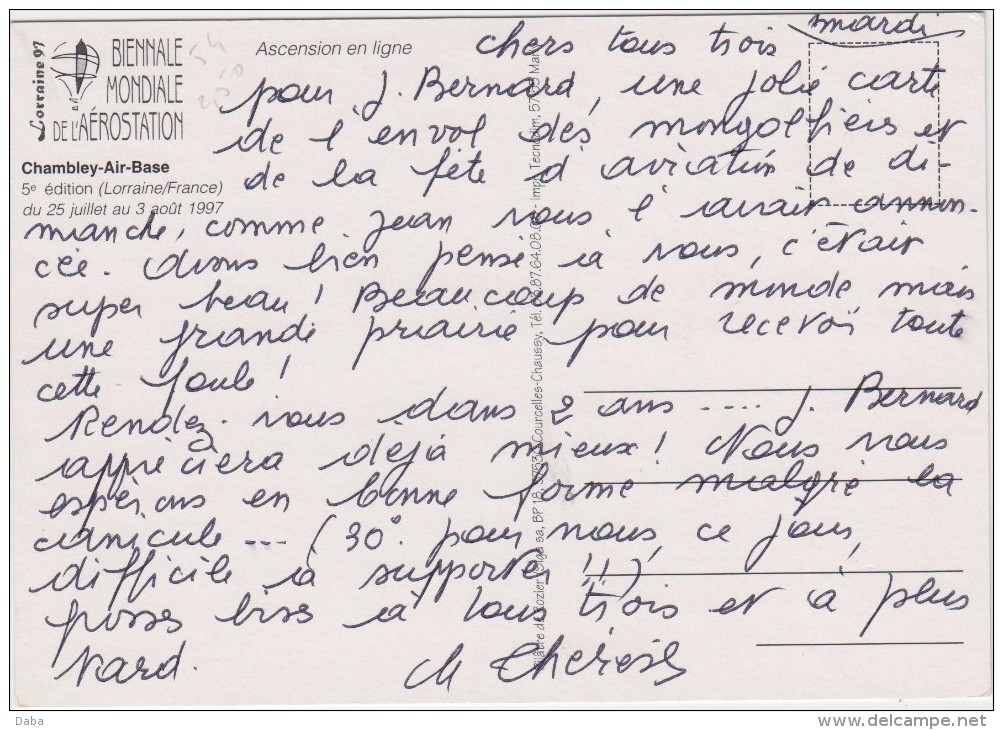 mardi
Lorraine 97
BIENNALE
MONDIALE
DE L'AÉROSTATION
Ascension en ligne
Chambley-Air-Base
5e édition (Lorraine/France)
du 25 juillet au 3 août 1997
chers tous trois
pour J. Bernard, une jolie carte
de l'envol des mongolfiers et
de la fête d'aviation de di-
manche, comme Jean vous l'avait annon-
cée. Avons bien pensé à vous, c'était
super beau! Beaucoup de monde mais
une grande prairie pour recevoir toute
cette foule!
Rendez-vous dans 2 ans .... J. Bernard
appréciera déjà mieux! Nous vous
espérons en bonne forme malgré la
canicule ... (30° pour nous, ce jour,
difficile à supporter!!),
grosses bises à tous trois et à plus
tard.
M Thérèse
BP 18, Courcelles-Chaussy, Tél. 87.64.08. - Impr. Tecnodim, 57
Daba
delcampe.net